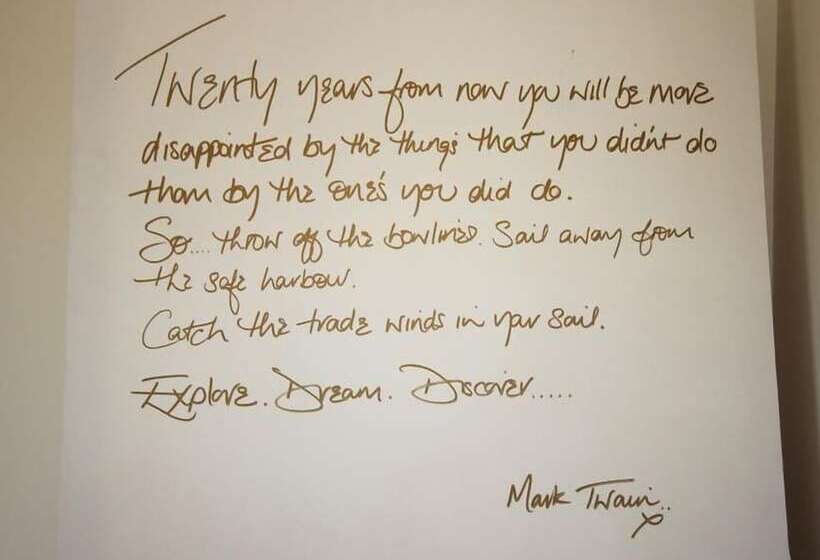 Twenty years from now you will be more
disappointed by the thing's that you didn't do
than by the one's you did do.
So.... throw off the bowlines. Sail away from
the safe harbour.
Catch the trade winds in your sail.
Explore. Dream. Discover.....
Mark Twain..
x